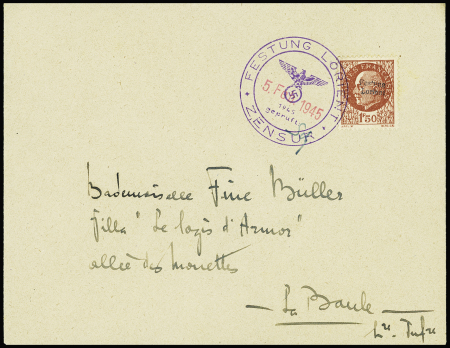 FESTUNG LORIENT
5. F 1945
1945
geprüft
ZENSUR
Festung
Lorient
1F50
Mademoiselle Fine Müller
Villa "Le logis d'Armor"
allée des Mouettes
La Baule
Lre. Infre